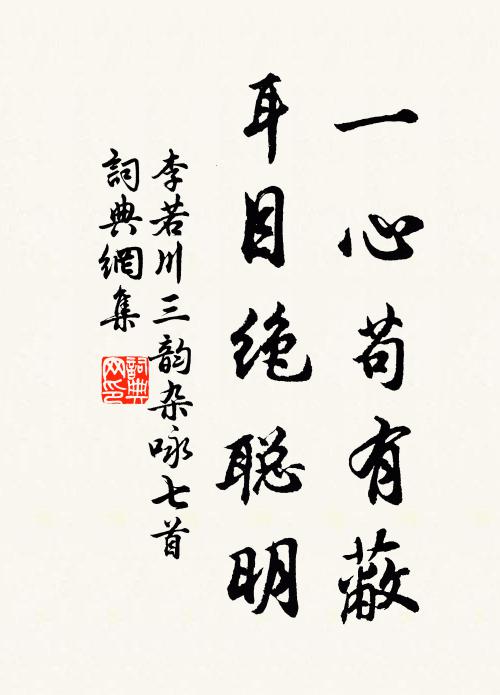 一心苟有蔽
耳目绝聪明
李若川三韵杂咏七首
詞典網集
詞典网印